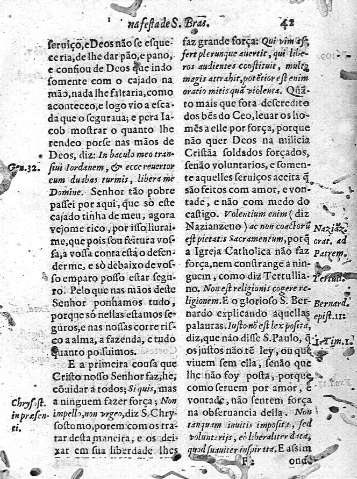 na festa de S. Bras. 42
seruiço, e Deos não se esque
ceria, de lhe dar pão, e pano,
e confiou de Deos que indo
somente com o cajado na
mão, nada lhe faltaria, como
aconteceo, e logo vio a esca-
da que o segurauа; e pera Ia
cob mostrar o quanto lhe
rendeo porse nas mãos de
Deos, diz: In baculo meo tran
siui Iordanem, & ecce reuertor
cum duabus turmis, libera me
Domine. Senhor tão pobre
passei por aqui, que só este
cajado tinha de meu, agora
vejome rico, por isso, liurai
me, que pois sou feitura vos-
sa, a vossa conta està o defen-
derme, e sò debaixo de vos-
so emparo posso estar segu-
ro. Pelo que nas mãos deste
Senhor ponhamos tudo,
porque só nellas estamos se-
guros, e nas nossas corre ris-
co a alma, a fazenda, e tudo
quanto possuimos.
E a primeira cousa que
Christo nosso Senhor faz, he,
cõuidar a todos; Si quis, mas
a ninguem fazer força; Non
impello, non vrgeo, diz S. Chry
sostomo, porem com os tra-
tar desta maneira, e os dei-
xar em sua liberdade lhes
Gen. 32.
Chrys. st.
in præsen-
ti.
faz grande força: Qui vim af-
fert plerunque auertit, qui libe-
ros audientes constituit, multo
magis attrahit, potẽtior est enim
oratio mitis quã violenta. Quã
to mais que fora descredito
dos bẽs do Ceo, leuar os ho-
mẽs a elle por força, porque
não quer Deos na milicia
Cristãa soldados forçados,
senão voluntarios, e somen-
te aquelles seruiços aceita q̃
são feitos com amor, e von-
tade, e não com medo do
castigo. Volentium enim (diz
Nazianzeno) ac non coachorũ
est pietatis Sacramentum, porq̃
a Igreja Catholica não faz
força, nem constrange a nin-
guem, como diz Tertullia-
no. Non est religionis cogere re
ligionem. E o glorioso S. Ber
nardo explicando aquellas
palauras. Iustonõ est lex posita,
diz, que não disse S. Paulo, q̃
os justos não tẽ ley, ou que
viuem sem ella, senão que
lhe não foy posta, porque
como seruem por amor, e
vontade, não sentem força
na obseruancia della. Non
tanquam inuitis imposita, sed
voluntarijs, eò liberaliter data,
quod suauiter inspirata. E assim
Nazia.
orat. ad
Patrem.
Tertul.
Bernard.
epist. 11:
1. Tim. 1.
F 2 onde